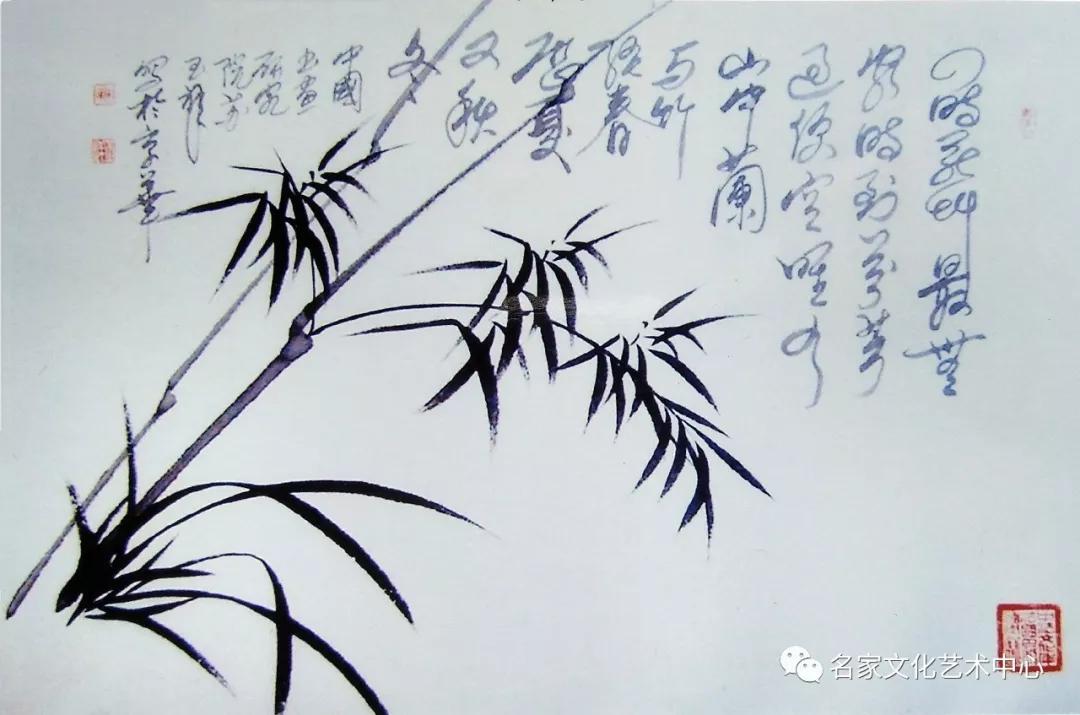 四時花艸最無
窮時到芬芳
過便空唯有
山中蘭
与竹
經春
歷夏
又秋
冬
中國
书画
研究
院苏
玉
写於京華
名家文化艺术中心